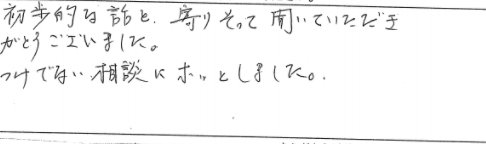 初歩的な話を、寄りそって聞いていただき
がとうございました。
つけでない相談にホッとしました。